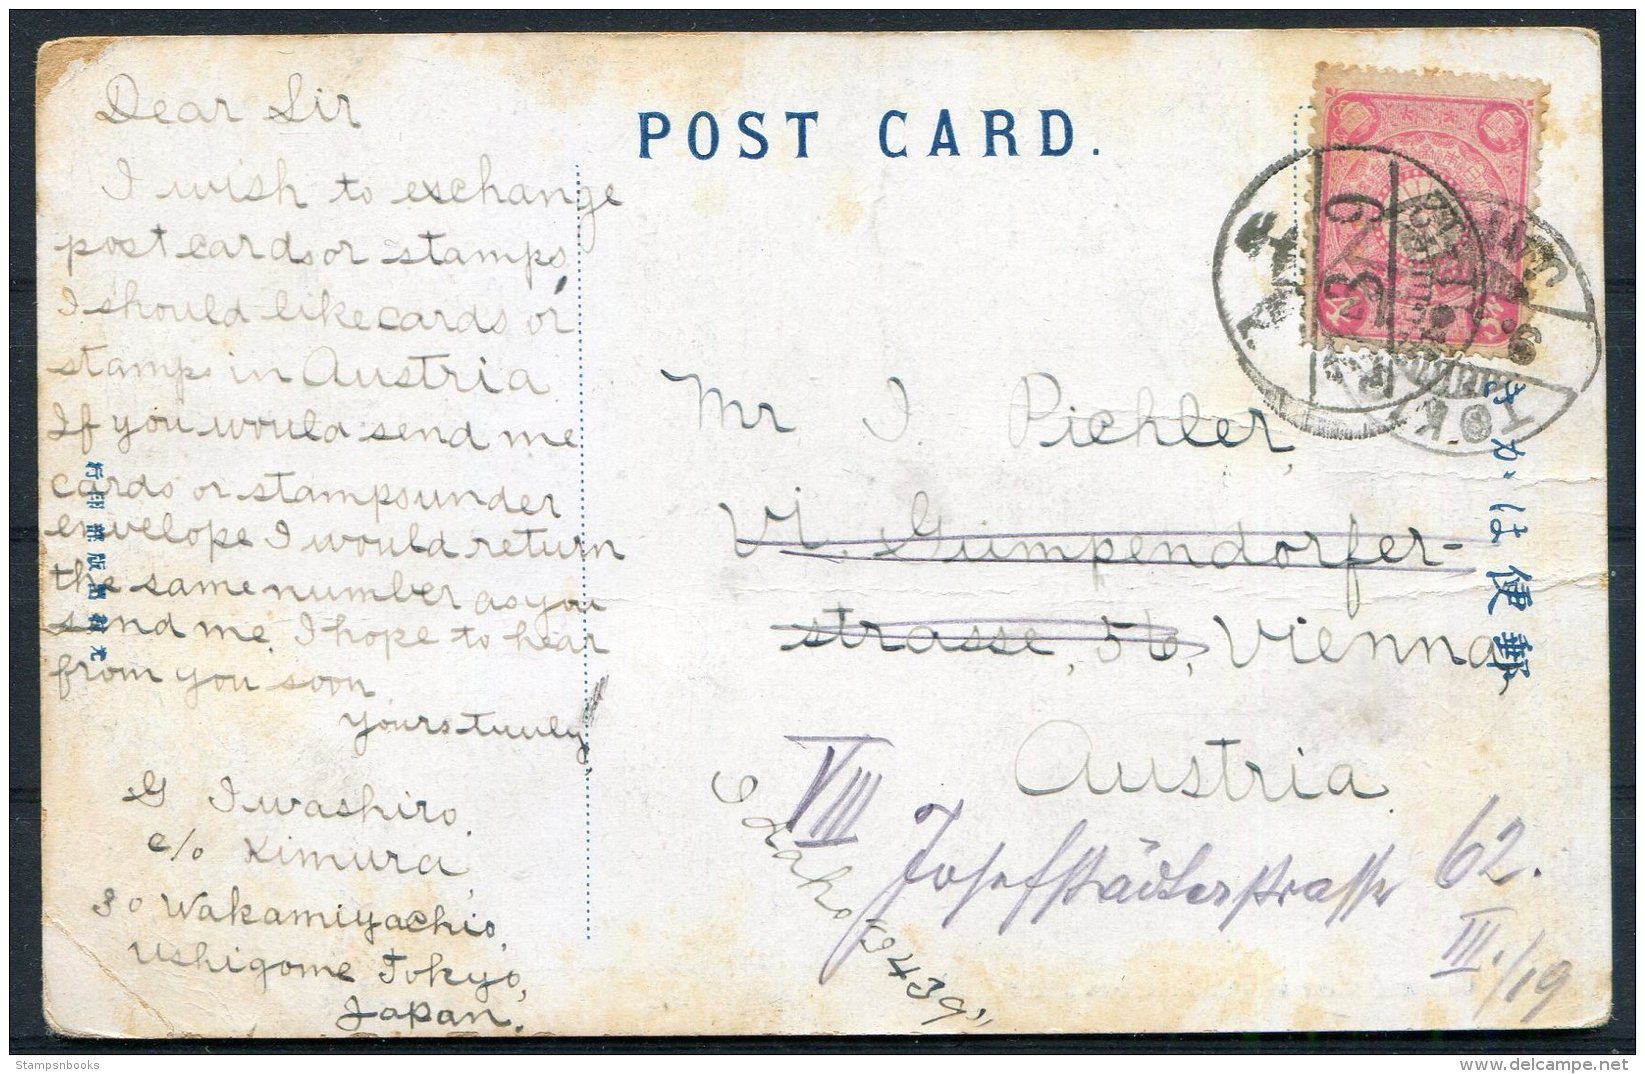 POST CARD.
Dear Sir
I wish to exchange
post cards or stamps,
I should like cards or
stamps in Austria
If you would send me
cards or stamps under
envelope I would return
the same number as you
send me. I hope to hear
from you soon
yours truly,
G Iwashiro.
c/o Kimura,
30 Wakamiyachio,
Ushigome Tokyo,
Japan.
Mr. J. Pichler,
VI. Gumpendorfer-
strasse, 56, Vienna,
Austria
VIII Josefstädterstrasse 62.
III./19
郵便はかき
3 7 9
StampsnBooks